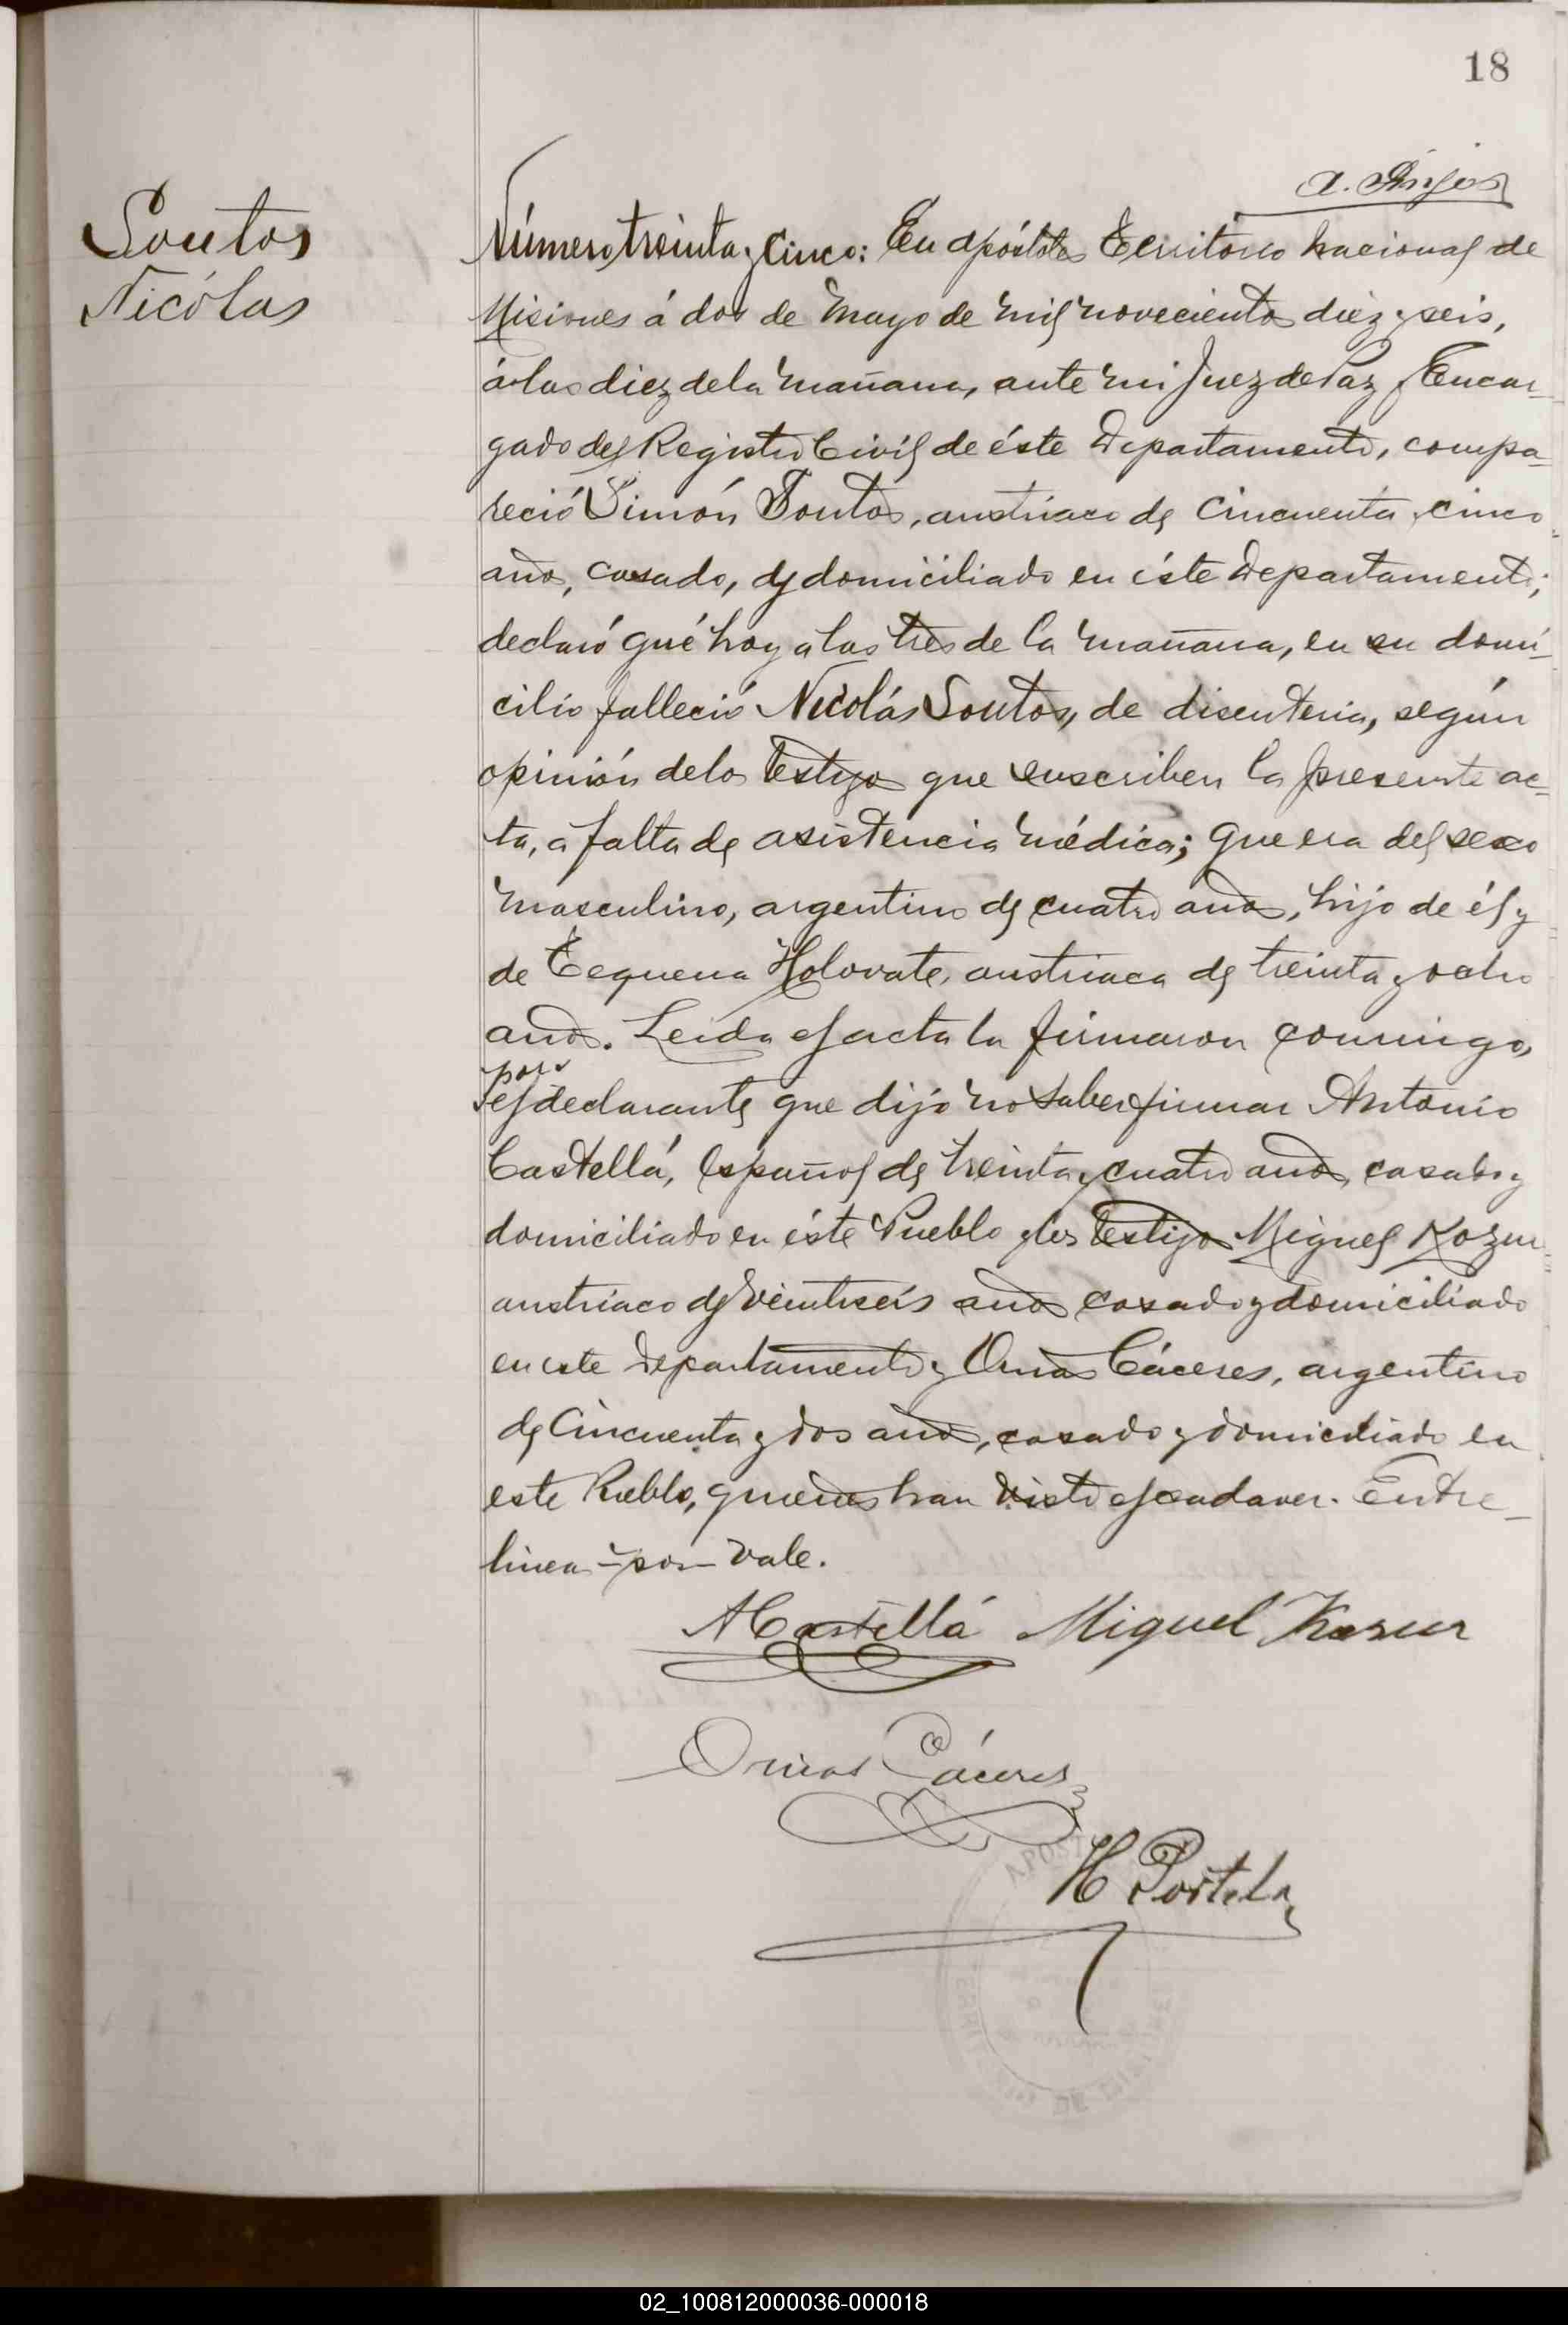 18
Soutos
Nicólas
Número treinta y Cinco: En apóstoles Territorio nacional de
Misiones á dos de Mayo de mil novecientos diez y seis,
á las diez de la mañana, ante mi Juez de Paz y Encar-
gado del Registro Civil de éste Departamento, compa-
reció Simón Soutos, austriaco de cincuenta y cinco
años, casado, y domiciliado en éste Departamento;
declaró qué hoy a las tres de la mañana, en su domi-
cilio falleció Nicolás Soutos, de disenteria, según
opinión de los testigos que suscriben la presente ac-
ta, a falta de asistencia médica; que era del sexo
masculino, argentino de cuatro años, hijo de él y
de Tequena Holovate, austriaca de treinta y ocho
años. Leida el acta la firmaron conmigo,
por
el declarante que dijo no saber firmar Antonio
Castellá, español de treinta y cuatro años, casado y
domiciliado en éste Pueblo y los testigos Miguel Kozur
austriaco de veintiseis años casado y domiciliado
en este Departamento y Omas Cáceres, argentino
de Cincuenta y dos años, casado y domiciliado en
este Pueblo, quienes han visto el cadaver. Entre-
linea - por - vale.
A Castellá Miguel Kozur
Omas Cáceres
H Portela
02_100812000036-000018